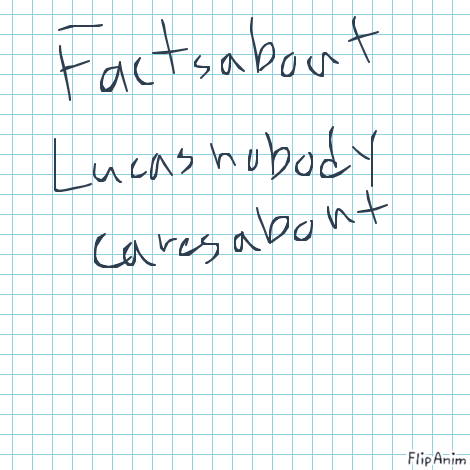 Facts about
Lucas nobody
cares about
FlipAnim